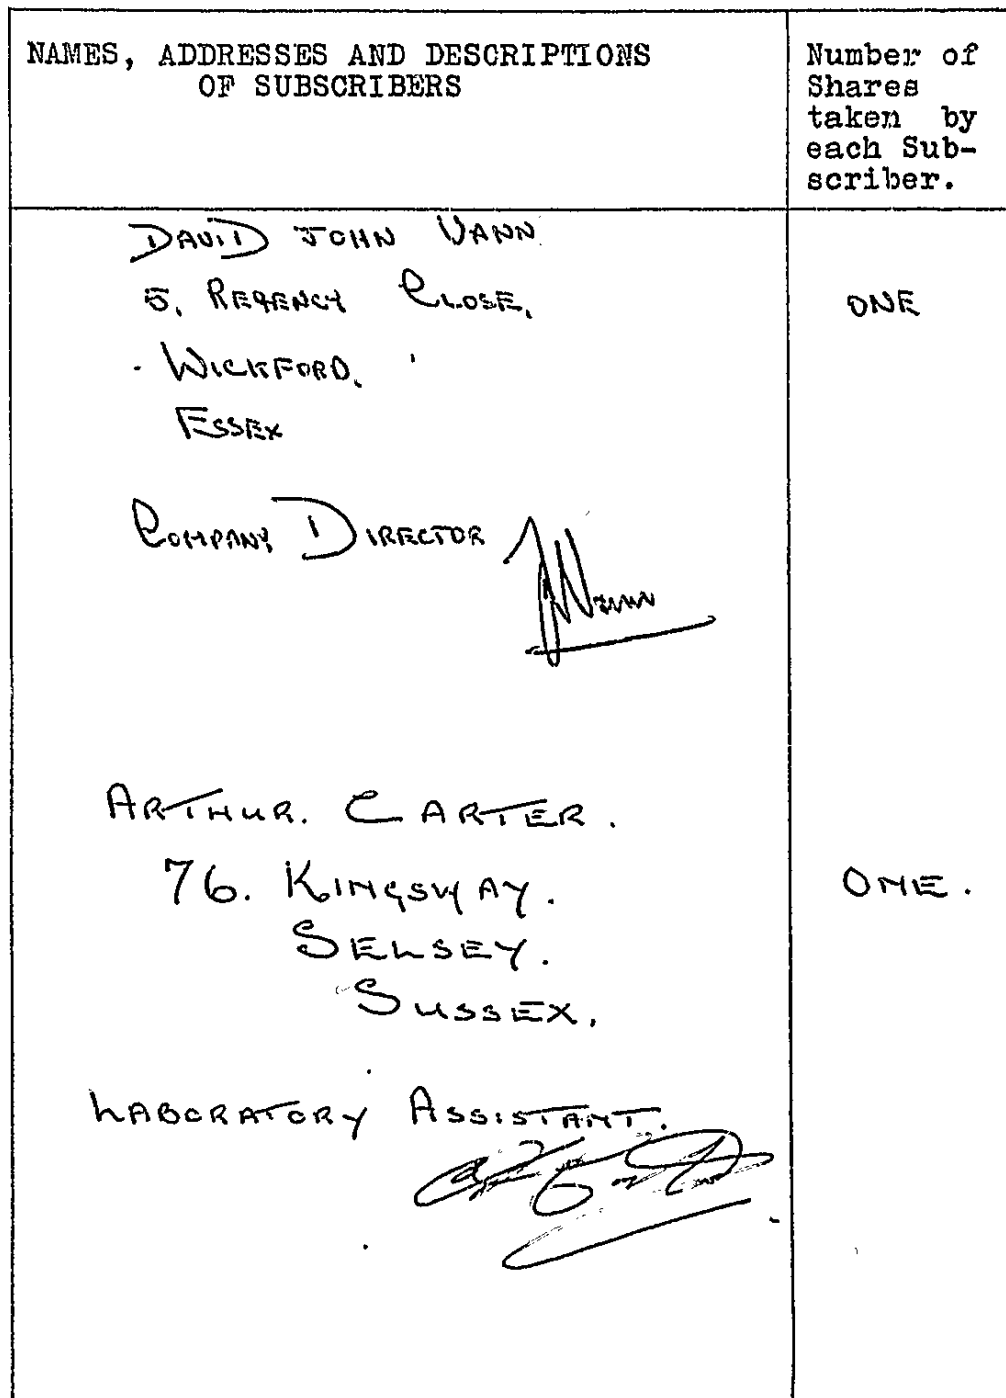 NAMES, ADDRESSES AND DESCRIPTIONS
OF SUBSCRIBERS
Number of
Shares
taken by
each Sub-
scriber.
DAVID JOHN VANN
5, REGENCY CLOSE,
ONE
WICKFORD,
ESSEX
COMPANY DIRECTOR
ARTHUR. CARTER.
76. KINGSWAY.
ONE.
SELSEY.
SUSSEX.
LABORATORY ASSISTANT.